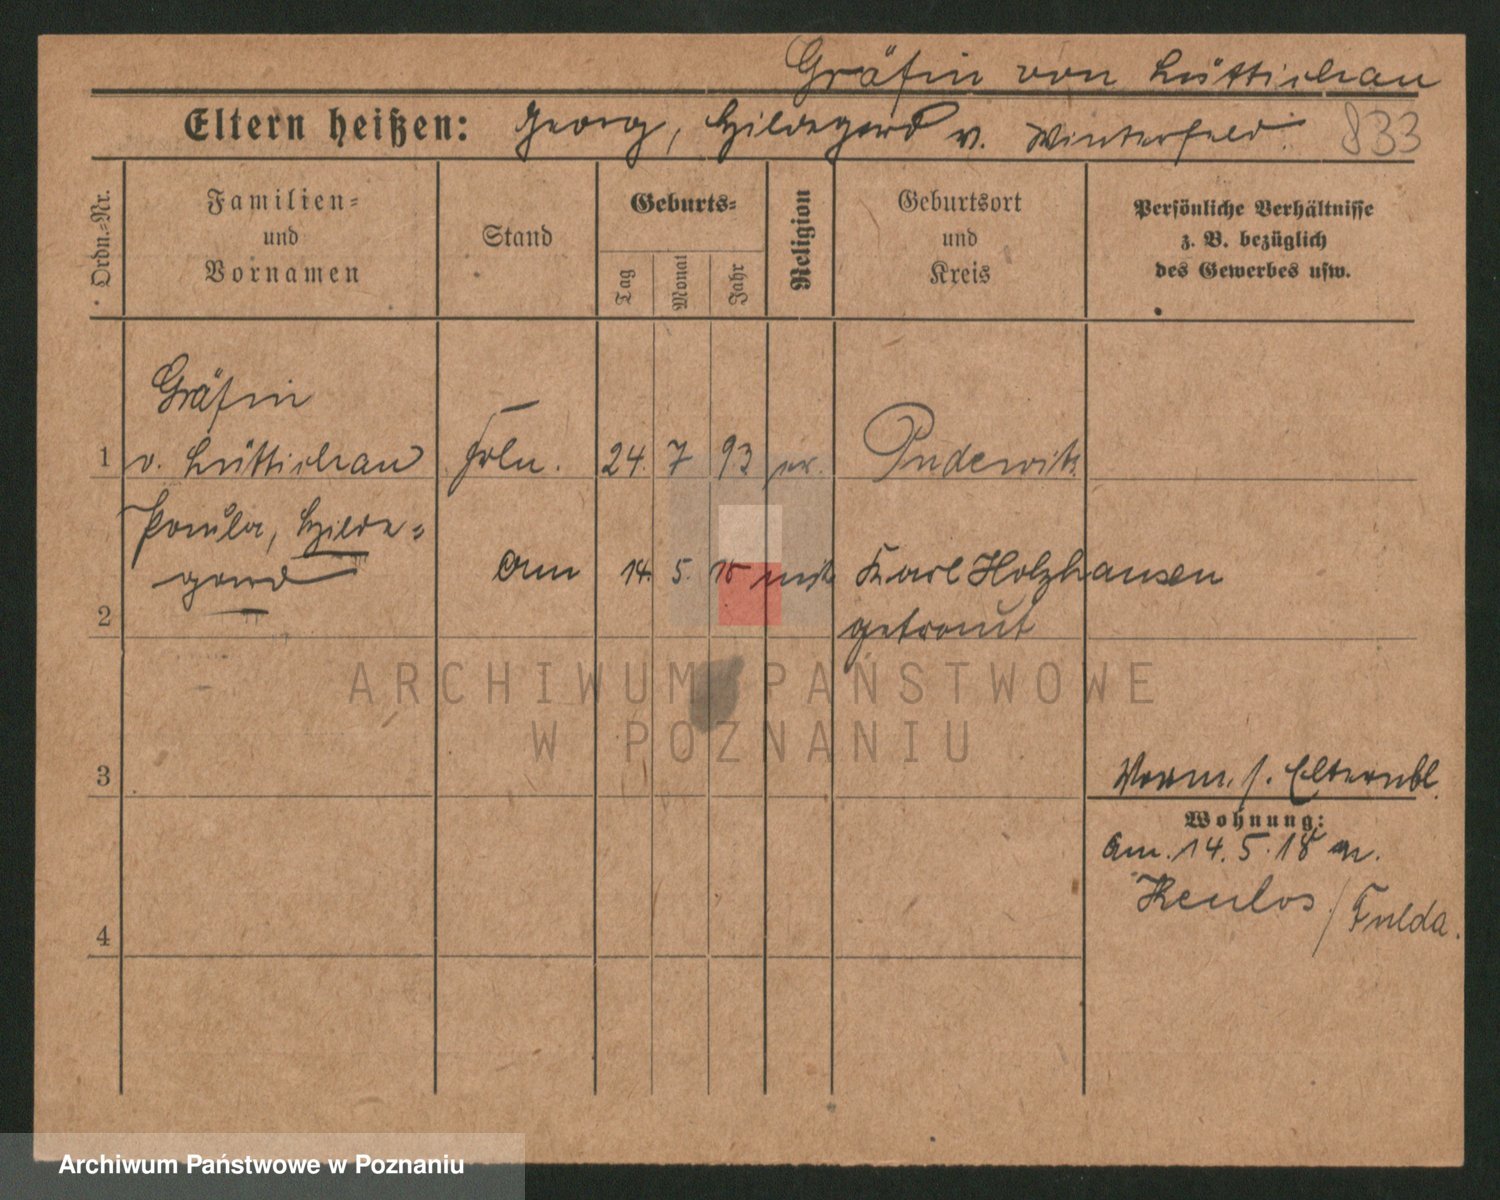 Gräfin von Lüttichau
Eltern heißen: Georg, Hildegard v. Winterfeld.
833
Ordn.-Nr.
Familien-
und
Vornamen
Stand
Geburts-
Tag
Monat
Jahr
Religion
Geburtsort
und
Kreis
Persönliche Verhältnisse
z. B. bezüglich
des Gewerbes usw.
Gräfin
1 v. Lüttichau Frln. 24. 7 93 Pudewitz
Paula, Hilde-
gard
Am 14. 5. 18 mit Karl Holzhausen
2 getraut
ARCHIWUM PAŃSTWOWE
W POZNANIU
3 Vorm. s. Elternbl.
Wohnung:
Am. 14. 5. 18 n.
Keulos / Fulda.
4
Archiwum Państwowe w Poznaniu